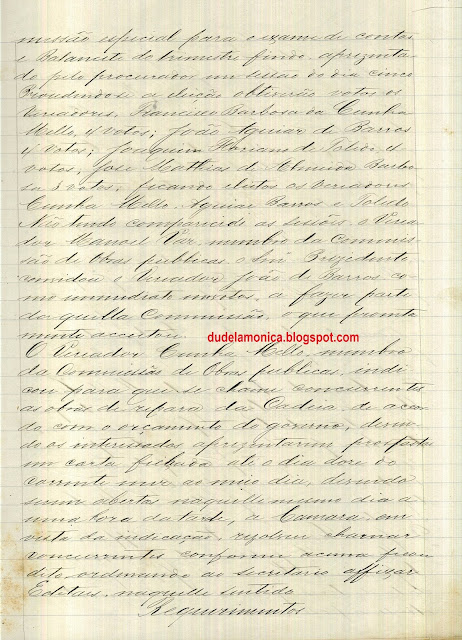 missão especial para o exame de contas
e Balancete do trimestre findo, aprezenta
do pelo procurador em sessão do dia cinco
Procedendo-se a eleição obtiverão votos os
Vereadores, Francisco Barbosa da Cunha
Mello, 4 votos; João Aguiar de Barros
4 votos; Joaquim de Toledo, 4
votos, José Mathias de Almeida Barbo
sa 3 votos, ficando eleitos os vereadores
Cunha Mello, Aguiar Barros e Toledo
Não tendo comparecido as sessões o Verea
dor Manoel Vaz, membro da Commis
são de Obras publicas, o Snr Prezidente
convidou o Vereador João de Barros, co
mo immediato em votos, a fazer parte
da quella Commissão, o que prompta
mente acceitou.
dudelamonica.blogspot.com
O Vereador Cunha Mello, membro
da Commissão de Obras publicas, indi
cou para que se chame concurrentes
as obras de reparo da Cadeia, de acor
do com o orçamento do governo, deven
do os interessados aprezentarem propostas
em carta fechada até o dia doze do
corrente mez ao meio dia, devendo
serem abertas naquelle mesmo dia a
uma hora da tarde, a Camara, em
vista da indicação, rezolveu chamar
concurrentes conforme acima ficou
dito, ordenando ao secretario affixar
Editaes naquelle sentido
Requerimentos